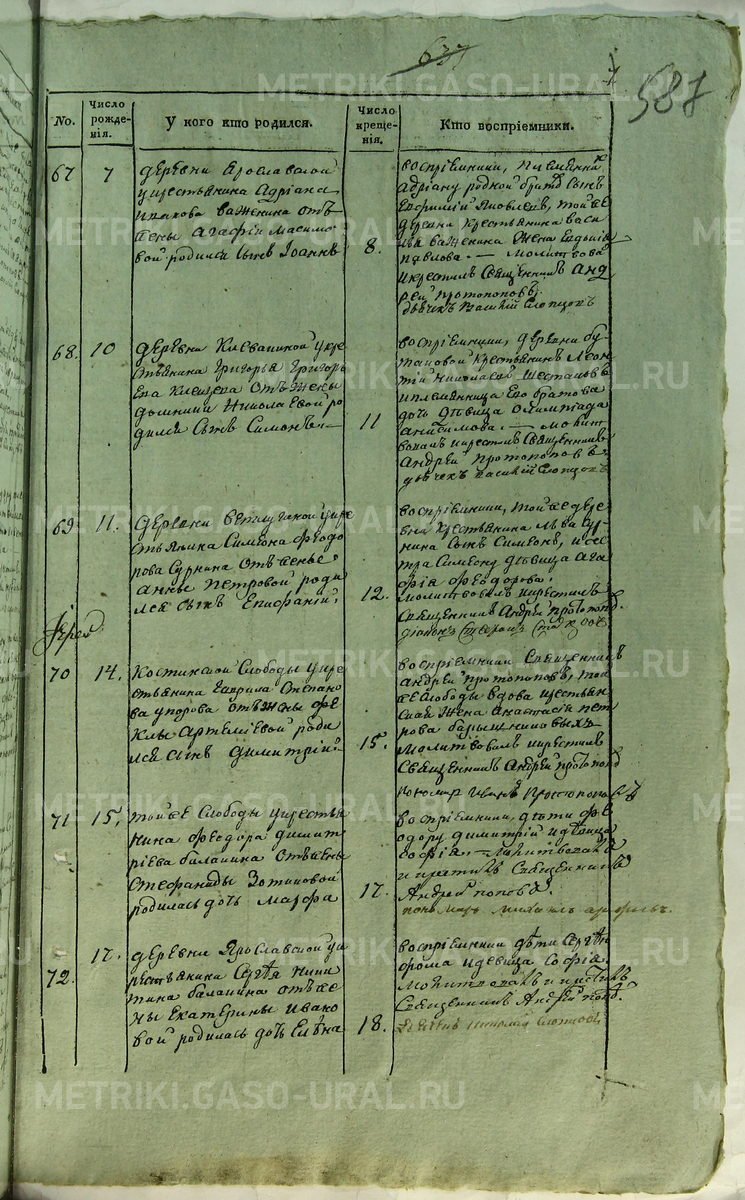 637
587
No.
Число рожденія.
У кого кто родился.
Число крещенія.
Кто воспріемники.
67
7
деревни Ярославской
у крестьянина Адріана
Важенина отъ
жены Агафіи Максимо
вой родился сынъ Іоаннъ
8.
воспріемники, племянникъ
Адріану родной братъ сынъ
Яковлевъ, той же
деревни крестьянина Васи
лья Важенина жена Евдокія
Павлова. — молитвовалъ
и крестилъ священникъ Анд
рей Протопоповъ.
дьячекъ Василій Слопцовъ
68.
10
деревни Клевакиной у кре
стьянина Григорья Григорь
ева Клещева отъ жены
Домники Николаевой ро
дился сынъ Симонъ. —
11
воспріемники, деревни Бу
тановой крестьянинъ Леон
тій Николаевъ Шестаковъ
и племянница его братова
дочь девица Олимпіада
Анисимова. — молит
вовалъ и крестилъ священникъ
Андрей Протопоповъ
дьячекъ Василій Слопцовъ
69.
11.
деревни Ветлугиной у кре
стьянина Симеона Феодо
рова Сурнина отъ жены
Анны Петровой роди
лся сынъ Епифаній;
12.
воспріемники, той же дере
вни крестьянина Льва Сур
нина сынъ Симеонъ, и сес
тра Симеону девица Ага
фія Феодорова;
молитвовалъ и крестилъ
священникъ Андрей Протопоп.
Іерея
70
14.
Костинской Слободы у кре
стьянина Гаврила Степано
ва Упорова отъ жены Фе
клы Артеміевой роди
лся сынъ Димитрій
15.
воспріемники священникъ
Андрей Протопоповъ, той
же слободы вдова крестьян
ская жена Анастасія Пет
рова Барышниковыхъ
молитвовалъ и крестилъ
священникъ Андрей Протопоп
пономарь Иванъ Протопоповъ
71
15.
той же Слободы у крестья
нина Феодора Димит
ріева Балакина отъ жены
Стефаниды Зотиковой
родилась дочь Марфа
17.
воспріемники, дети Фе
одору Димитрій и девица
Софія. — молитвовалъ
и крестилъ священникъ
Андрей Поповъ.
пономарь Михаилъ
72.
17.
деревни Ярославской у к
рестьянина Сергея Ники
тина Балакина отъ же
ны Екатерины Ивано
вой родилась дочь Елена
18.
воспріемники дети Сергея
Фома и девица Софія.
молитвовалъ и крестилъ
священникъ Андрей Попов.
METRIKI.GASO-URAL.RU